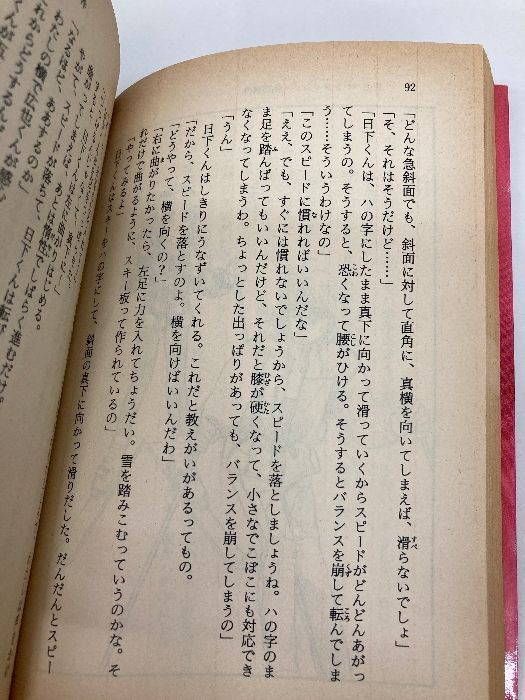 92
「どんな急斜面でも、斜面に対して直角に、真横を向いてしまえば、滑らないでしょ」
「そ、それはそうだけど……」
「日下くんは、ハの字にしたまま真下に向かって滑っていくからスピードがどんどんあがっ
てしまうの。そうすると、恐くなって腰がひける。そうするとバランスを崩して転んでしま
う……そういうわけなの」
「このスピードに慣れればいいんだな」
「ええ、でも、すぐには慣れないでしょうから、スピードを落としましょうね。ハの字のま
ま足を踏んばってもいいんだけど、それだと膝が硬くなって、小さなでこぼこにも対応でき
なくなってしまうわ。ちょっとした出っぱりがあっても、バランスを崩してしまうの」
「うん」
日下くんはしきりにうなずいてくれる。これだと教えがいがあるってもの。
「だから、スピードを落とすのよ。横を向けばいいんだわ」
「どうやって、横を向くの？」
「右に曲がりたかったら、左足に力を入れてちょうだい。雪を踏みこむっていうのかな。そ
れだけで曲がるように、スキー板って作られているの」
「やってみるよ」
日下くんはスキーをハの字にして、斜面の真下に向かって滑りだした。だんだんとスピー
「なるほど、ああするのか」
わたしの横で広也くんが感